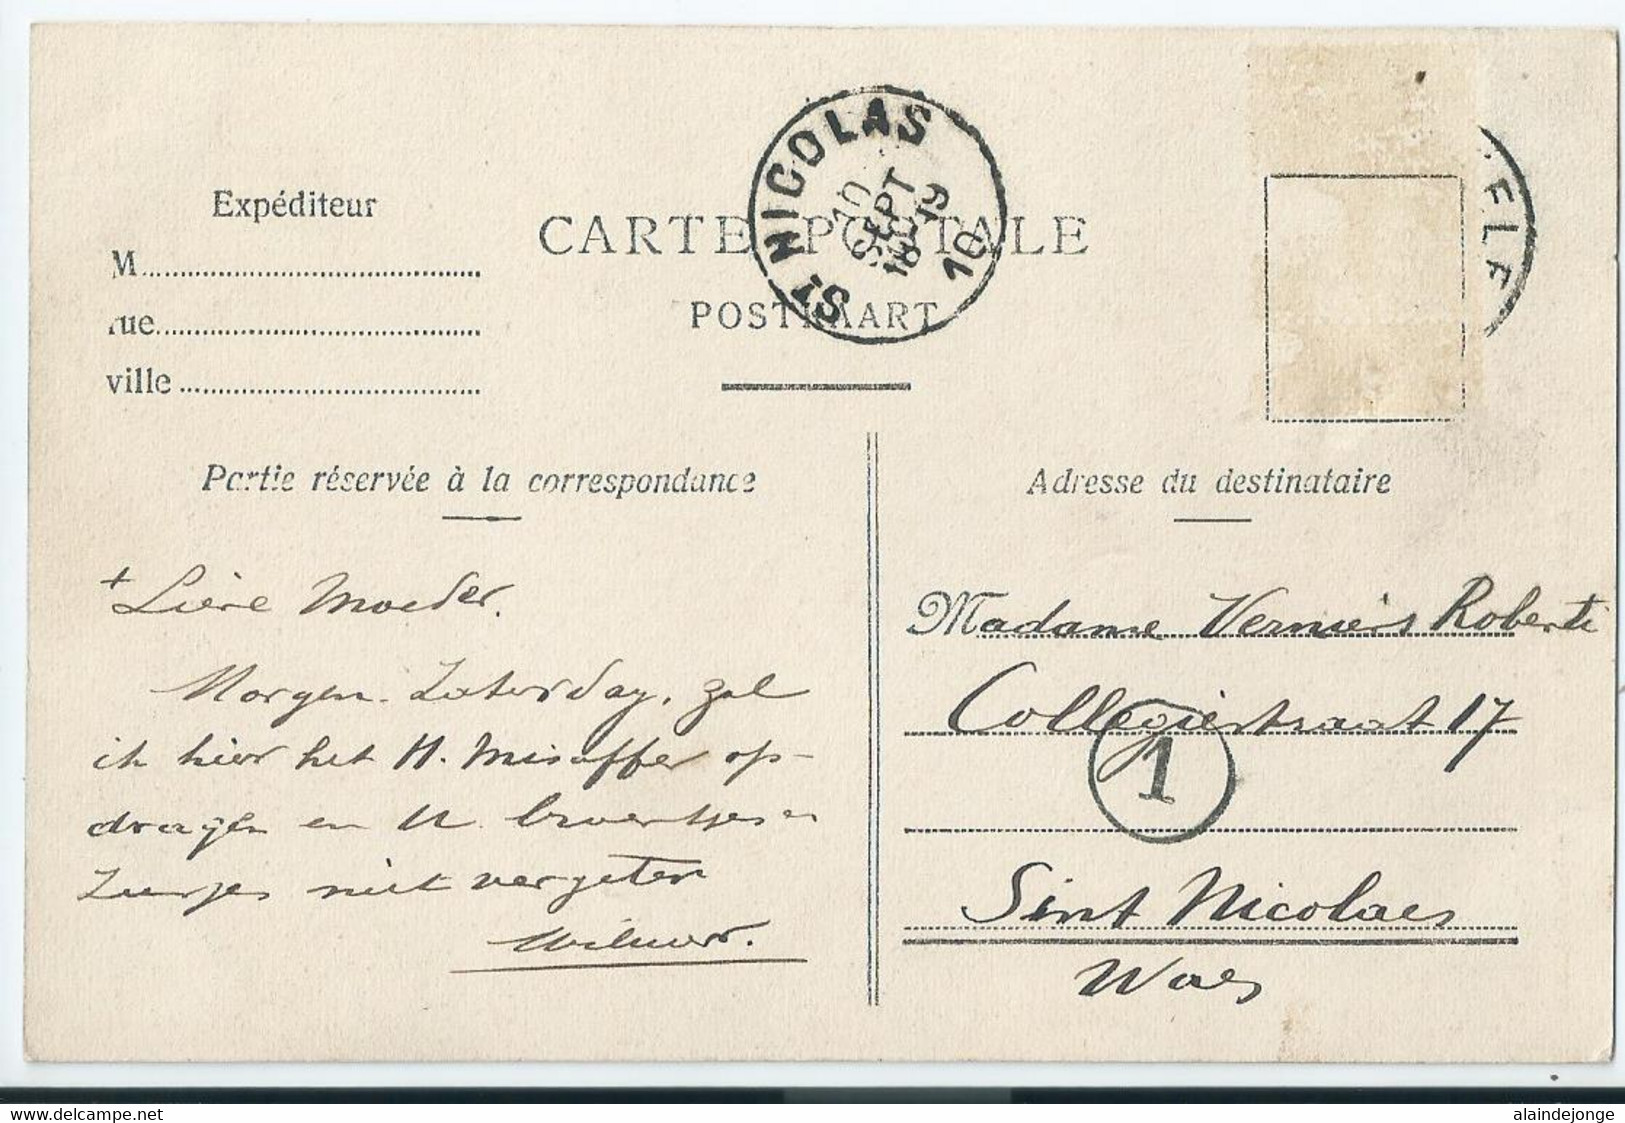 Expéditeur
M
rue
ville
CARTE POSTALE
POSTKAART
ST NICOLAS
10
SEPT
18-19
10
ELF
Partie réservée à la correspondance
Adresse du destinataire
+ Liève Moeder.
Morgen Zaterdag, zal
ik hier het H. Misoffer op-
dragen en U. broertjes en
Zusjes niet vergeten
Madame Verniers Roberti
Collegiestraat 17
1
Sint Nicolaes
Waes
www.delcampe.net
alaindejonge